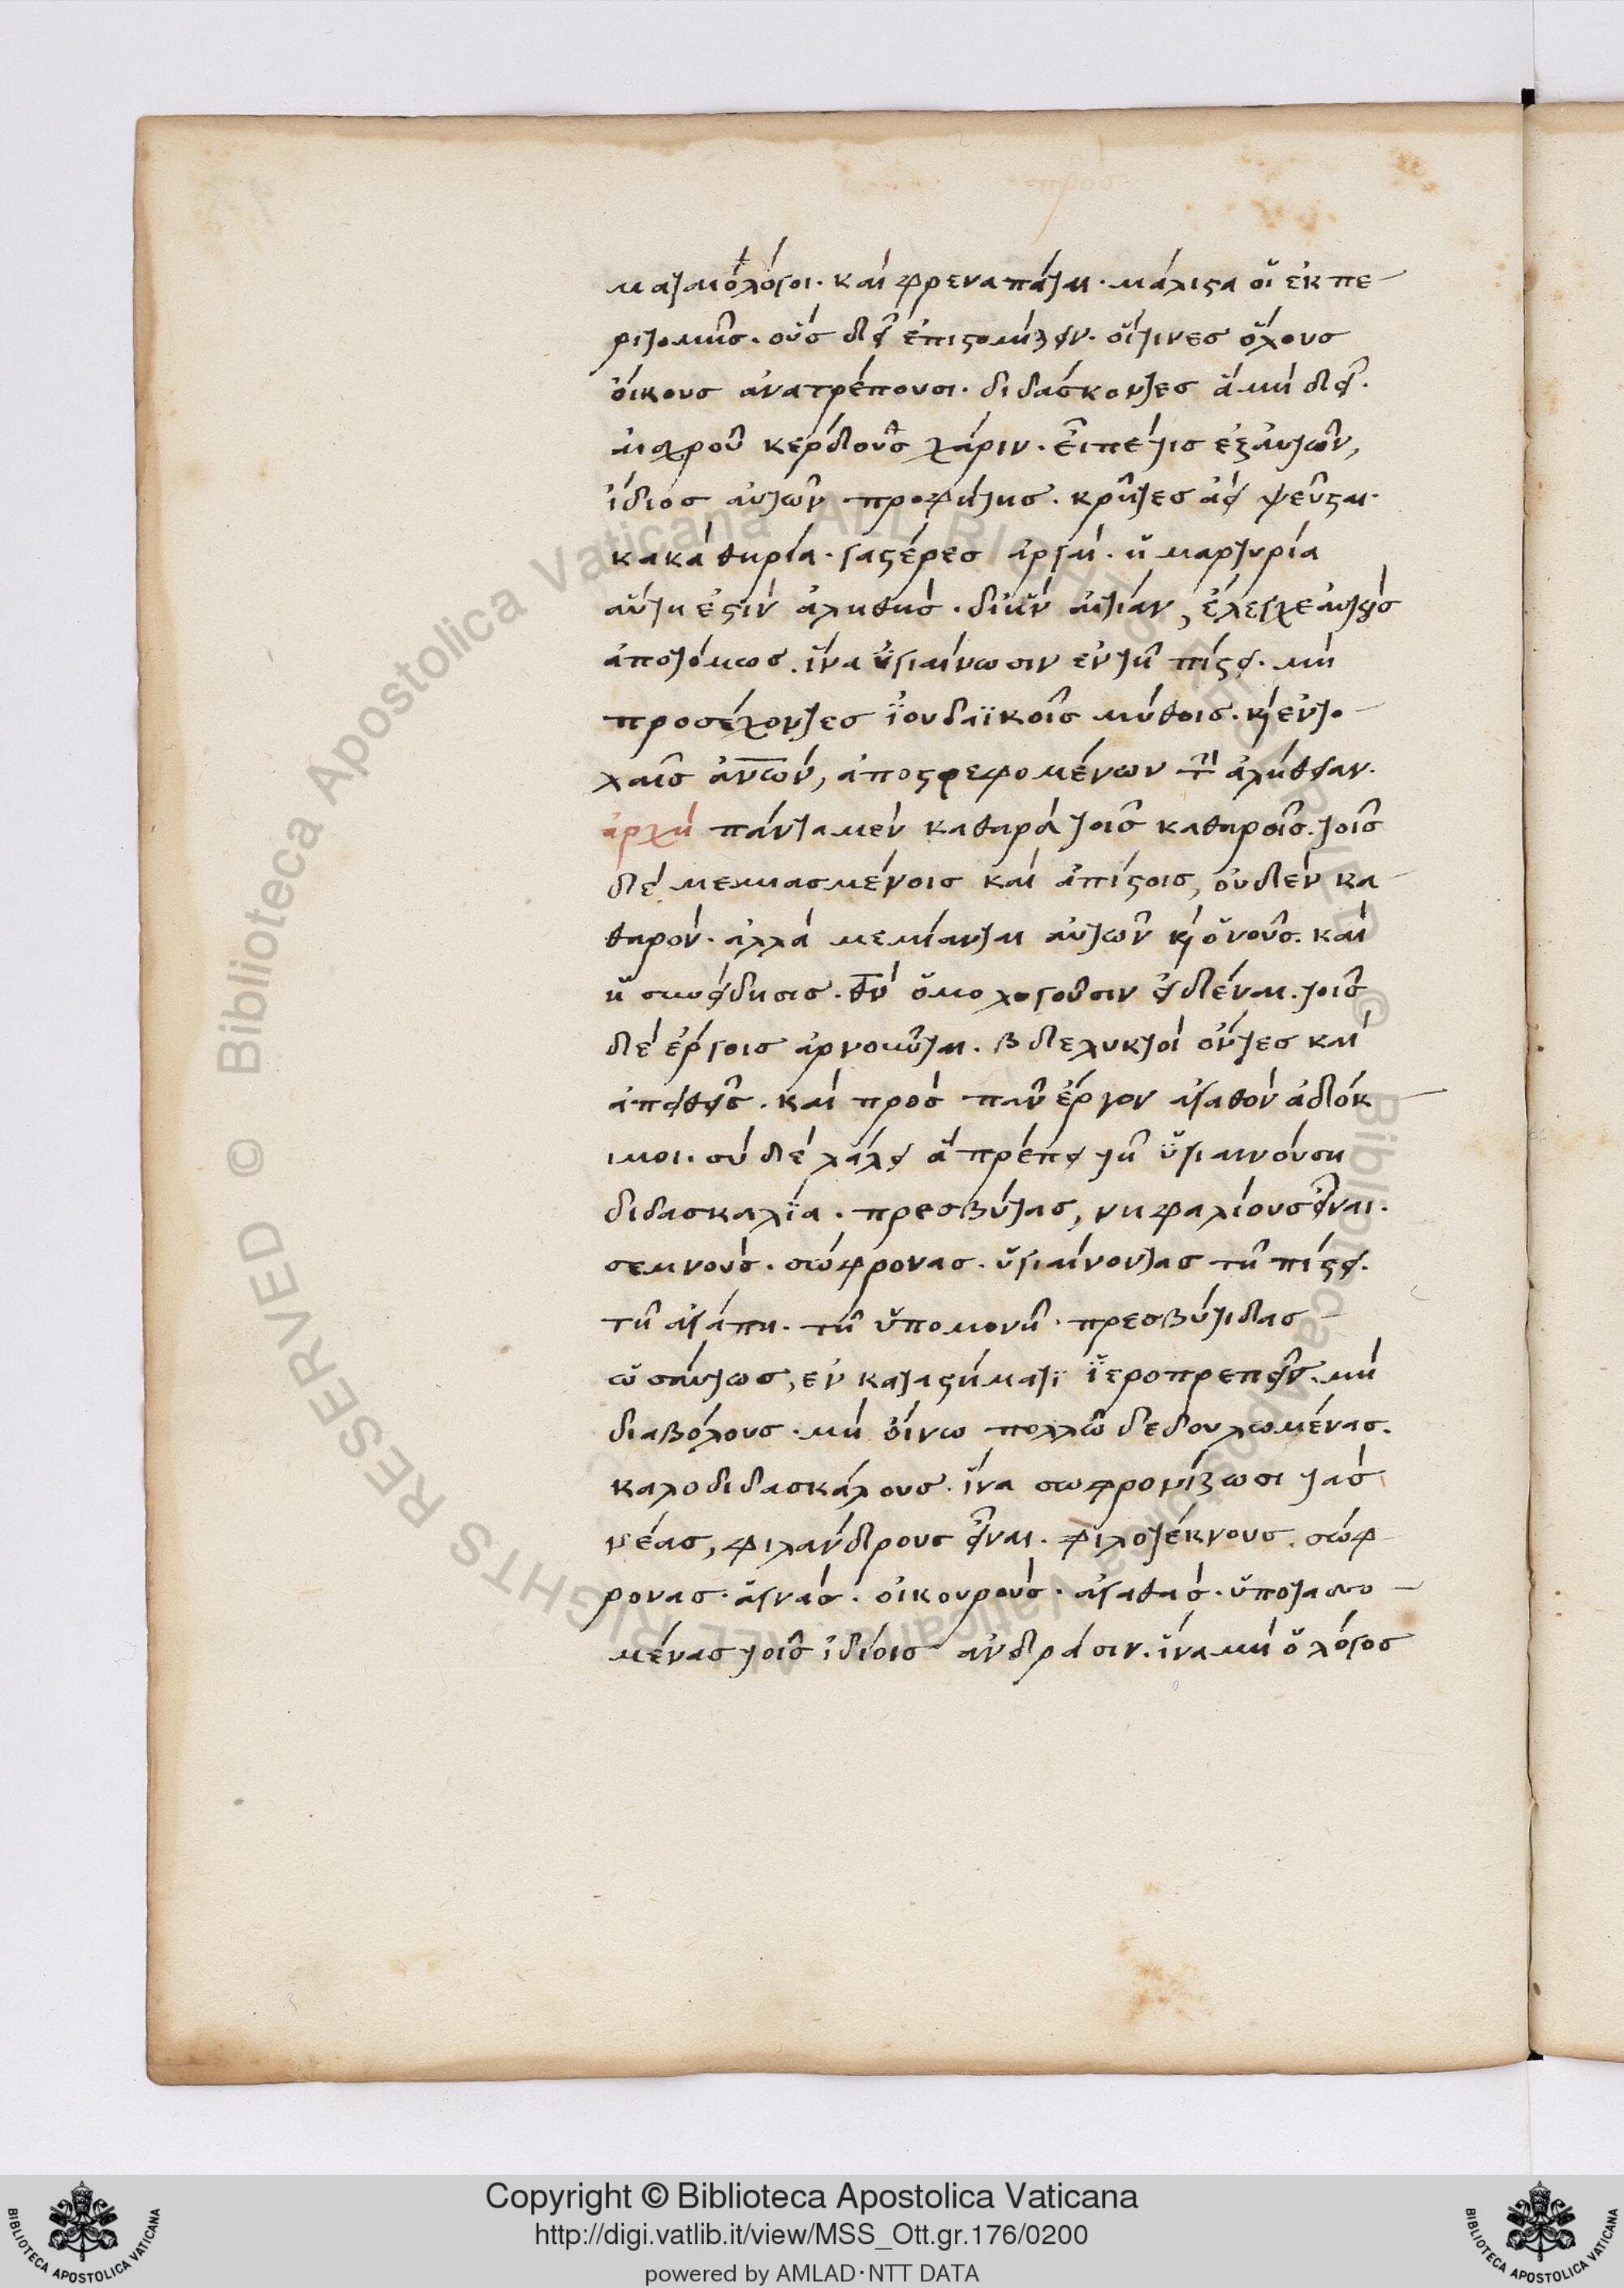 ματαιόλόγοι. καὶ φρεναπάται. μάλιστα οἱ ἐκ πε-
ριτομῆς. οὓς δεῖ ἐπιστομίζειν. οἵτινες ὅλους
οἴκους ἀνατρέπουσι. διδάσκοντες ἃ μὴ δεῖ.
αἰσχροῦ κέρδους χάριν. εἶπέ τις ἐξ αὐτῶν,
ἴδιος αὐτῶν προφήτης. κρῆτες ἀεὶ ψεῦσται.
κακὰ θηρία. γαστέρες ἀργαί. ἡ μαρτυρία
αὕτη ἐστὶν ἀληθής. δι ἣν αἰτίαν, ἔλεγχε αὐτοὺς
ἀποτόμως. ἵνα ὑγιαίνωσιν ἐν τῇ πίστει. μὴ
προσέχοντες ϊουδαϊκοῖς μύθοις. καὶ ἐντο-
λαῖς ἀν̅ω̅ν, ἀποστρεφομένων τὴν ἀλήθειαν.
ἀρχὴ πάντα μὲν καθαρὰ τοῖς καθαροῖς. τοῖς
δὲ μεμιασμένοις καὶ ἀπίστοις, οὐδὲν κα-
θαρόν. ἀλλὰ μεμίανται αὐτῶν καὶ ὁ νοῦς. καὶ
ἡ συνείδησις. θ̅ν̅ ὁμολογοῦσιν εἰδέναι. τοῖς
δὲ ἔργοις ἀρνοῦνται. βδελυκτοὶ ὄντες καὶ
ἀπειθεῖς. καὶ πρὸς πᾶν ἔργον ἀγαθὸν ἀδόκ-
ιμοι. σὺ δὲ λάλει ἃ πρέπει τῇ ὑγιαινούση
διδασκαλΐα. πρεσβύτας, νηφαλίους εἶναι.
σεμνούς. σώφρονας. ὑγιαίνοντας τῇ πίστει.
τῇ ἀγάπη. τῇ ὑπομονῇ. πρεσβύτιδας
ὡσαύτως, ἐν καταστήματϊ ϊεροπρεπεῖς. μὴ
διαβόλους. μὴ οἴνω πολλῶ δεδουλωμένας.
καλοδιδασκάλους. ἵνα σωφρονίζωσι τὰς
νέας, φιλάνδρους εἶναι. φιλοτέκνους. σώφ
ρονας. ἁγνάς. οἰκουρούς. ἀγαθάς. ὑποτασσο-
μένας τοῖς ἰδίοις ἀνδράσιν. ἵνα μὴ ὁ λόγος
Copyright © Biblioteca Apostolica Vaticana
http://digi.vatlib.it/view/MSS_Ott.gr.176/0200
powered by AMLAD·NTT DATA
BIBLIOTECA APOSTOLICA VATICANA
BIBLIOTECA APOSTOLICA VATICANA